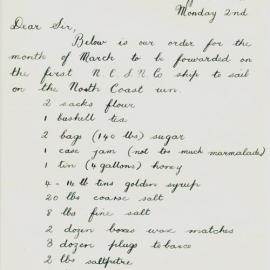 Monday 2nd
Dear Sir,
Below is our order for the
month of March to be forwarded on
the first N.C.S.N.Co ship to sail
on the North Coast run.
2 sacks flour
1 bushell tea
2 bags (140 lbs) sugar
1 case jam (not too much marmalade)
1 tin (4 gallons) honey
4 - 14 lb tins golden syrup
20 lbs coarse salt
8 lbs fine salt
2 dozen boxes wax matches
3 dozen plugs tobacco
2 lbs saltpetre